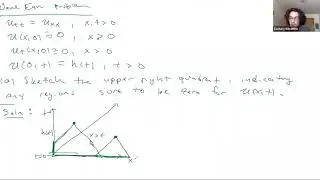 Wave Eqn Problem
u_tt = u_xx , x,t>0
u(x,0) = 0 , x≥0
u_t(x,0) = 0, x>0
u(0,t) = h(t) , t>0
(a) Sketch the upper right quadrant, indicating
any regions sure to be zero for u(x,t).
Soln:
t
h(t)
x>t
t=0
x